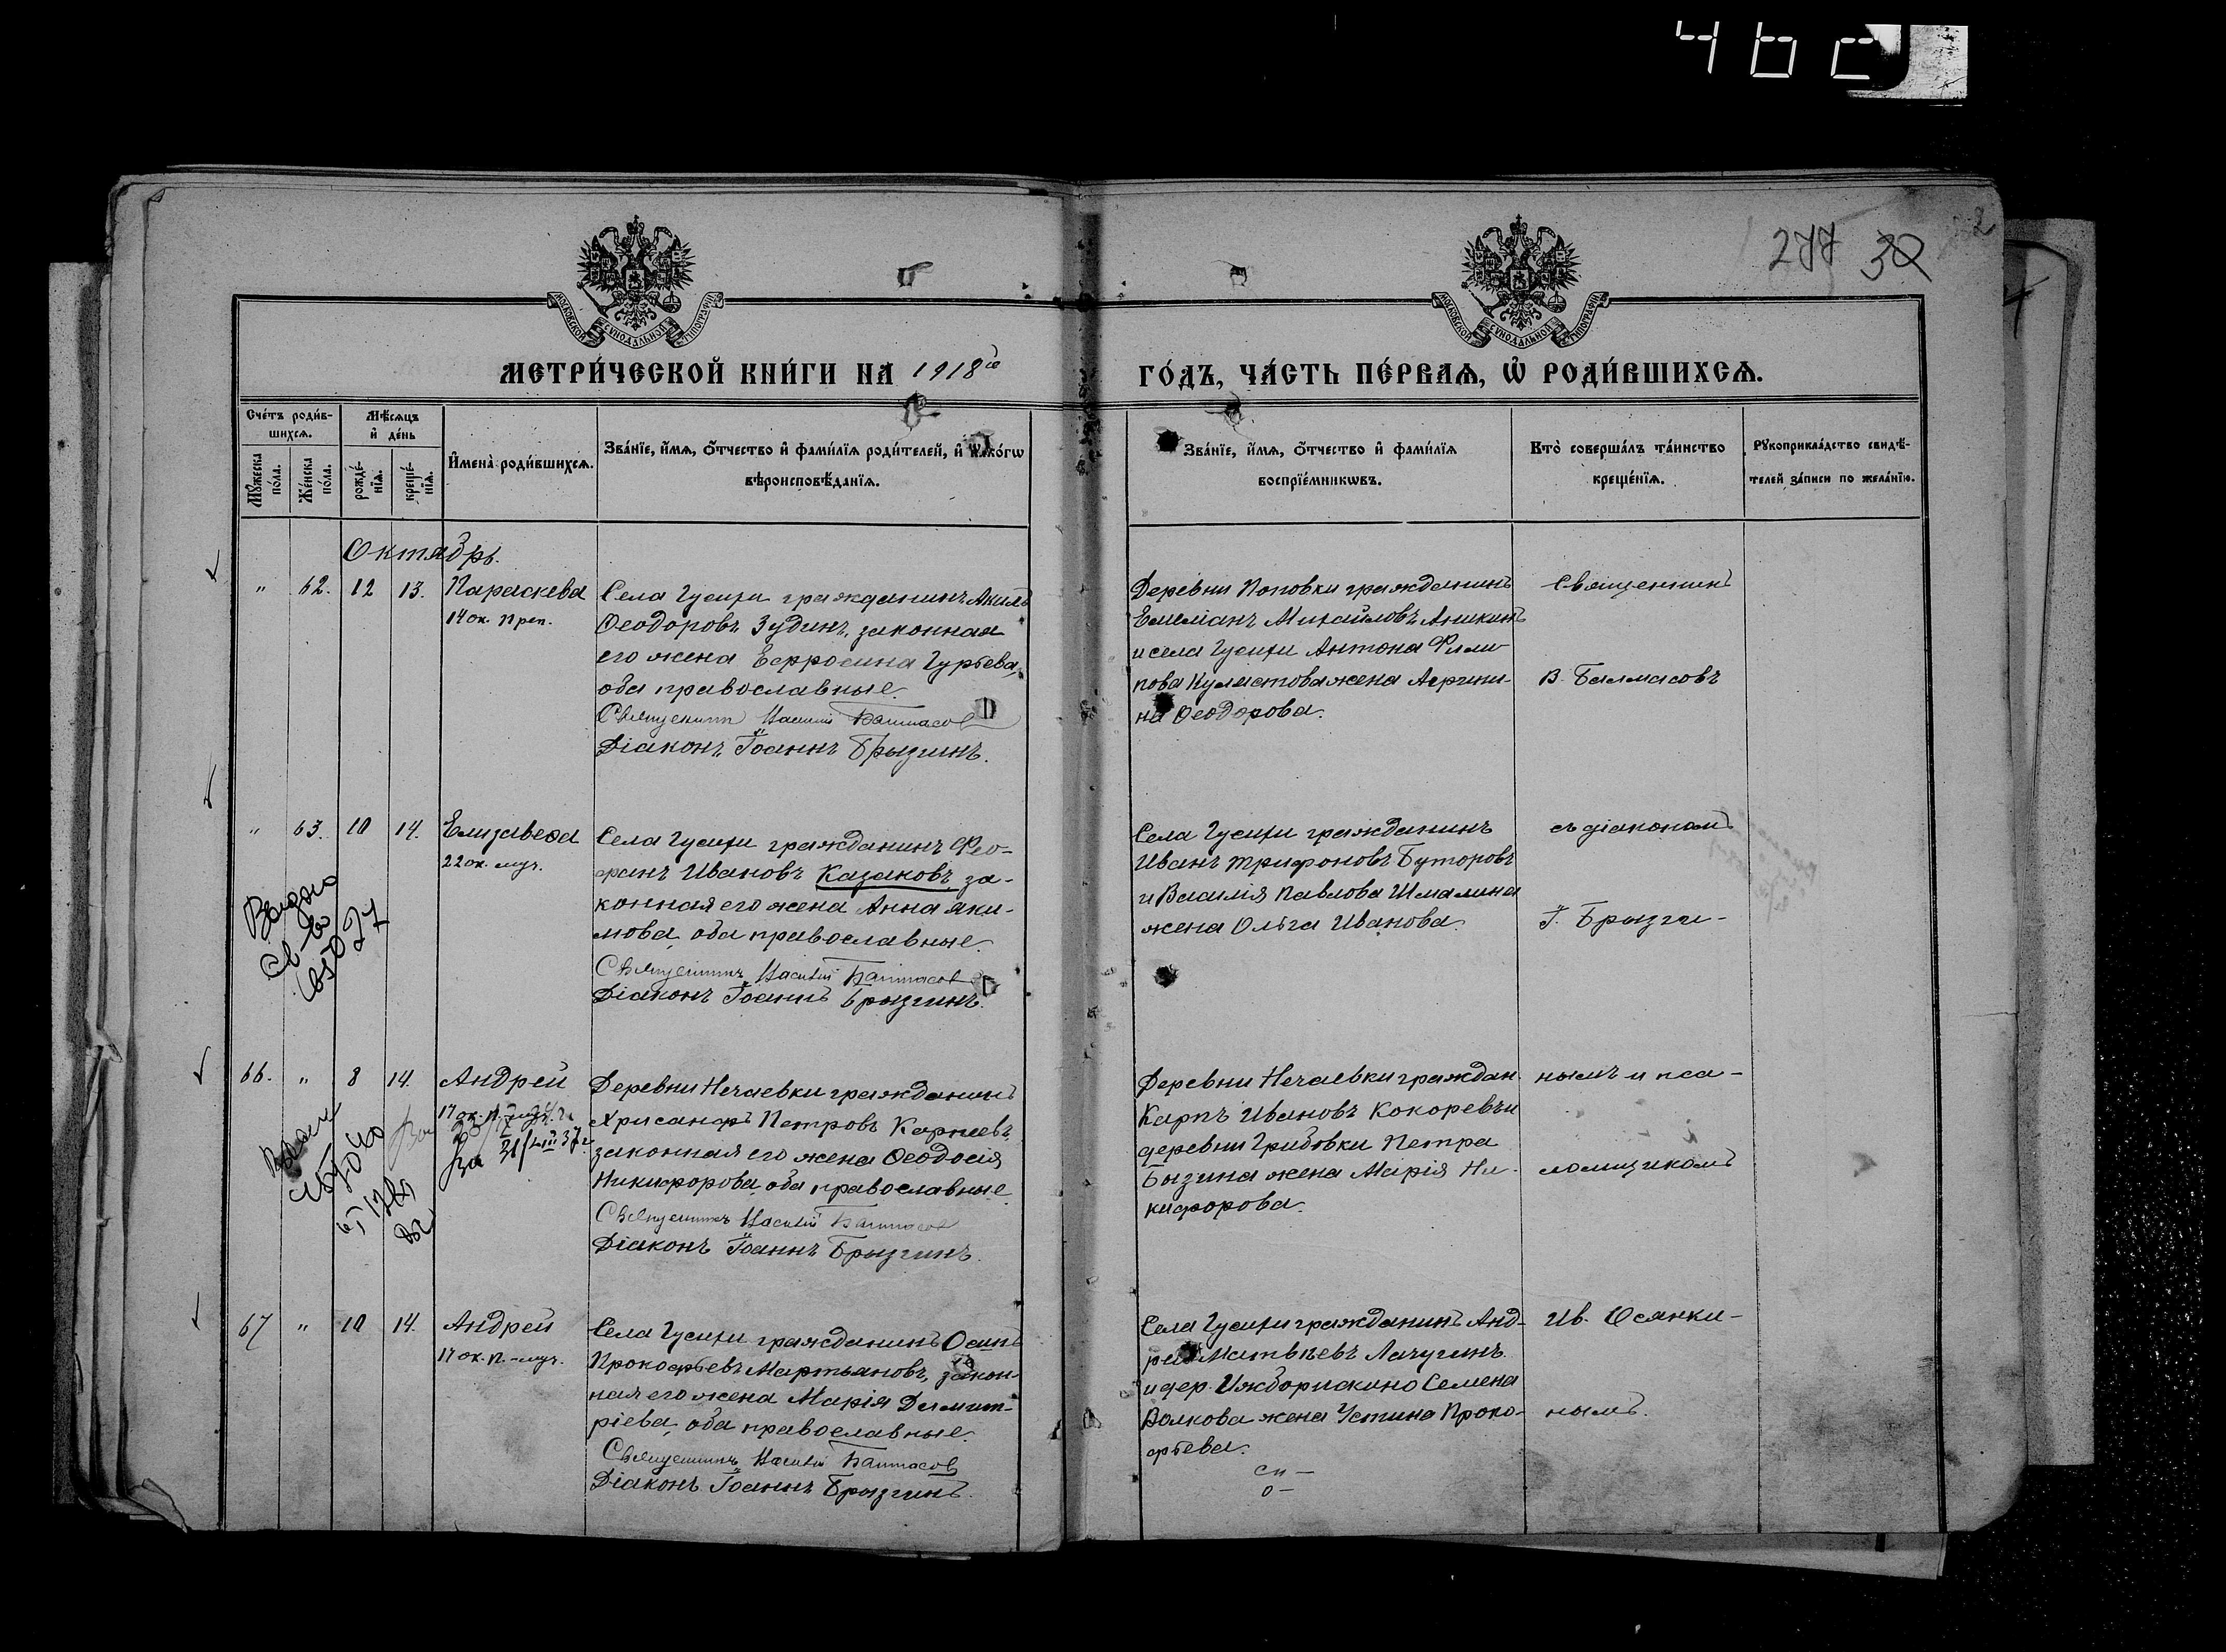 277 32
МОСКОВСКОЙ СѴНОДАЛЬНОЙ ТИПОГРАФІИ
МОСКОВСКОЙ СѴНОДАЛЬНОЙ ТИПОГРАФІИ
МЕТРИ́ЧЕСКОЙ КНИ́ГИ НА 1918й
ГО́ДЪ, ЧА́СТЬ ПЕ́РВАѦ, Ѽ РОДИ́ВШИХСѦ.
Сче́тъ роди́в-
шихсѧ.
Мѣ́сѧцъ
и҆ де́нь
Мꙋ́жеска
по́ла.
Же́нска
по́ла.
рожде́-
нїѧ.
креще́-
нїѧ.
И҆мена̀ роди́вшихсѧ.
Зва́нїе, и҆́мѧ, ѻ҆́тчество и҆ фами́лїѧ роди́телей, и҆ какогѡ
вѣроисповѣ́данїѧ.
Зва́нїе, и҆́мѧ, ѻ҆́тчество и҆ фами́лїѧ
воспрїе́мникѡвъ.
Кто̀ соверша́лъ та́инство
креще́нїѧ.
Рꙋкоприкла́дство свидѣ́-
телей за́писи по жела́нїю.
Октябрь.
" 62. 12 13. Параскева
14 ок. преп.
Села Гусихи гражданинъ Акимъ
Ѳеодоровъ Зудинъ, законная
его жена Евфросина Гурьева,
оба православные.
Священникъ Василий Балмасов
Діаконъ Іоаннъ Брызгинъ.
Деревни Поповки гражданинъ
Емеліанъ Михайловъ Аникинъ
и села Гусихи Антона Фили-
пова Кулматова жена Агрипи-
на Ѳеодорова.
Священникъ
В. Балмасовъ
" 63. 10 14. Елизавеѳа
22 ок. муч.
Села Гусихи гражданинъ Фео-
фанъ Ивановъ Казаковъ, за-
конная его жена Анна Аки-
мова, оба православные.
Священникъ Василий Балмасов
Діаконъ Іоаннъ Брызгинъ.
Выдано
Св-во
Села Гусихи гражданинъ
Иванъ Трифоновъ Буторовъ
и Василія Павлова Шмалина
жена Ольга Иванова.
съ діакономъ
І. Брызги-
66. " 8 14. Андрей
17 ок. п.-муч.
за 31/VIII 37 г.
Деревни Нечаевки гражданинъ
Хрисанфъ Петровъ Карпеевъ,
законная его жена Ѳеодосія
Никифорова, оба православные
Священникъ Василий Балмасов
Діаконъ Іоаннъ Брызгинъ.
Деревни Нечаевки граждан.
Карпъ Ивановъ Кокоревъ и
деревни Грибовки Петра
Бызина жена Марія Ни-
кифорова.
нымъ и пса-
ломщикомъ
67 " 10 14. Андрей
17 ок. п.-муч.
Села Гусихи гражданинъ Осипъ
Прокофьевъ Мартьяновъ, закон-
ная его жена Марія Димит-
ріева, оба православные.
Священникъ Василий Балмасов
Діаконъ Іоаннъ Брызгинъ.
Села Гусихи гражданинъ Анд-
рей Матвѣевъ Лачугинъ
и дер. Ижборискино Семена
Волкова жена Устина Проко-
фьева.
Ив. Осянки-
нымъ.